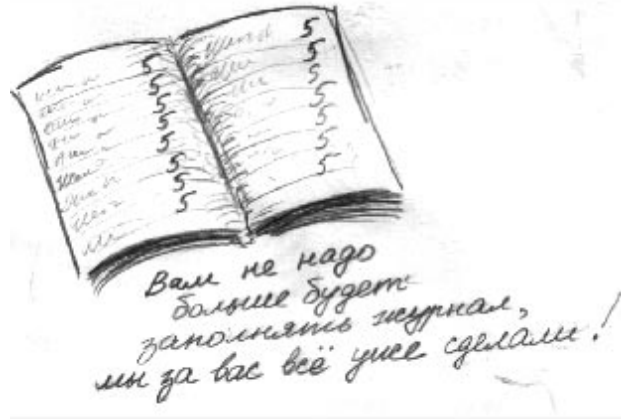 5
5
5
5
5
5
5
5
5
5
5
5
5
5
Вам не надо
больше будет
заполнять журнал,
мы за вас всё уже сделали!